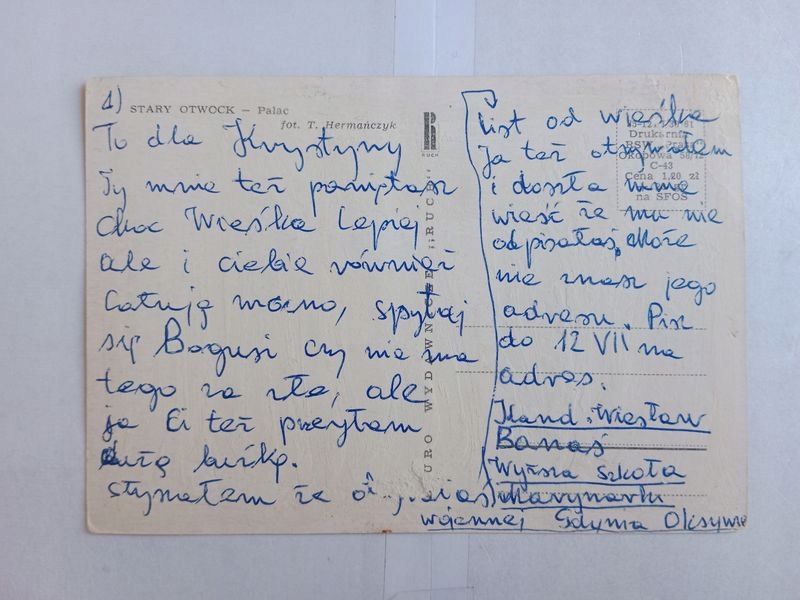 1)
STARY OTWOCK — Pałac
fot. T. Hermańczyk
To dla Krystyny
Ty mnie też pamiętasz
choc Wieśka lepiej
ale i ciebie również
całuję mocno, spytaj
się Bogusi czy nie ma
tego za złe, ale
ja Ci też przeyłam
dużą buśkę.
słyszałem że
BIURO WYDAWNICZE „RUCH"
RUCH
list od wieśka
Ja też otrzymałem
i doszła mnie
wieść że mu nie
odpisałaś, może
nie znasz jego
adresu. Pisz
do 12 VII na
adres.
Kand. Wiesław
Banaś
Wyższa Szkoła
Marynarki
wojennej Gdynia Oksywie
Drukarnia
RSW „Prasa"
Okopowa 58/72
C-43
Cena 1,20 zł
na SFOS